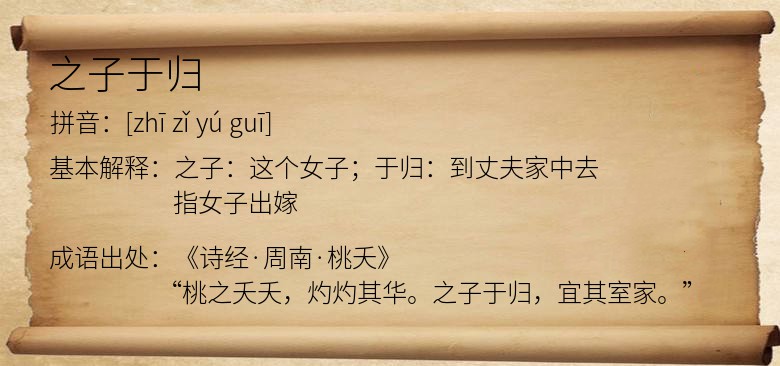 之子于归
拼音：[zhī zǐ yú guī]
基本解释：之子：这个女子；于归：到丈夫家中去
指女子出嫁
成语出处：《诗经·周南·桃夭》
“桃之夭夭，灼灼其华。之子于归，宜其室家。”